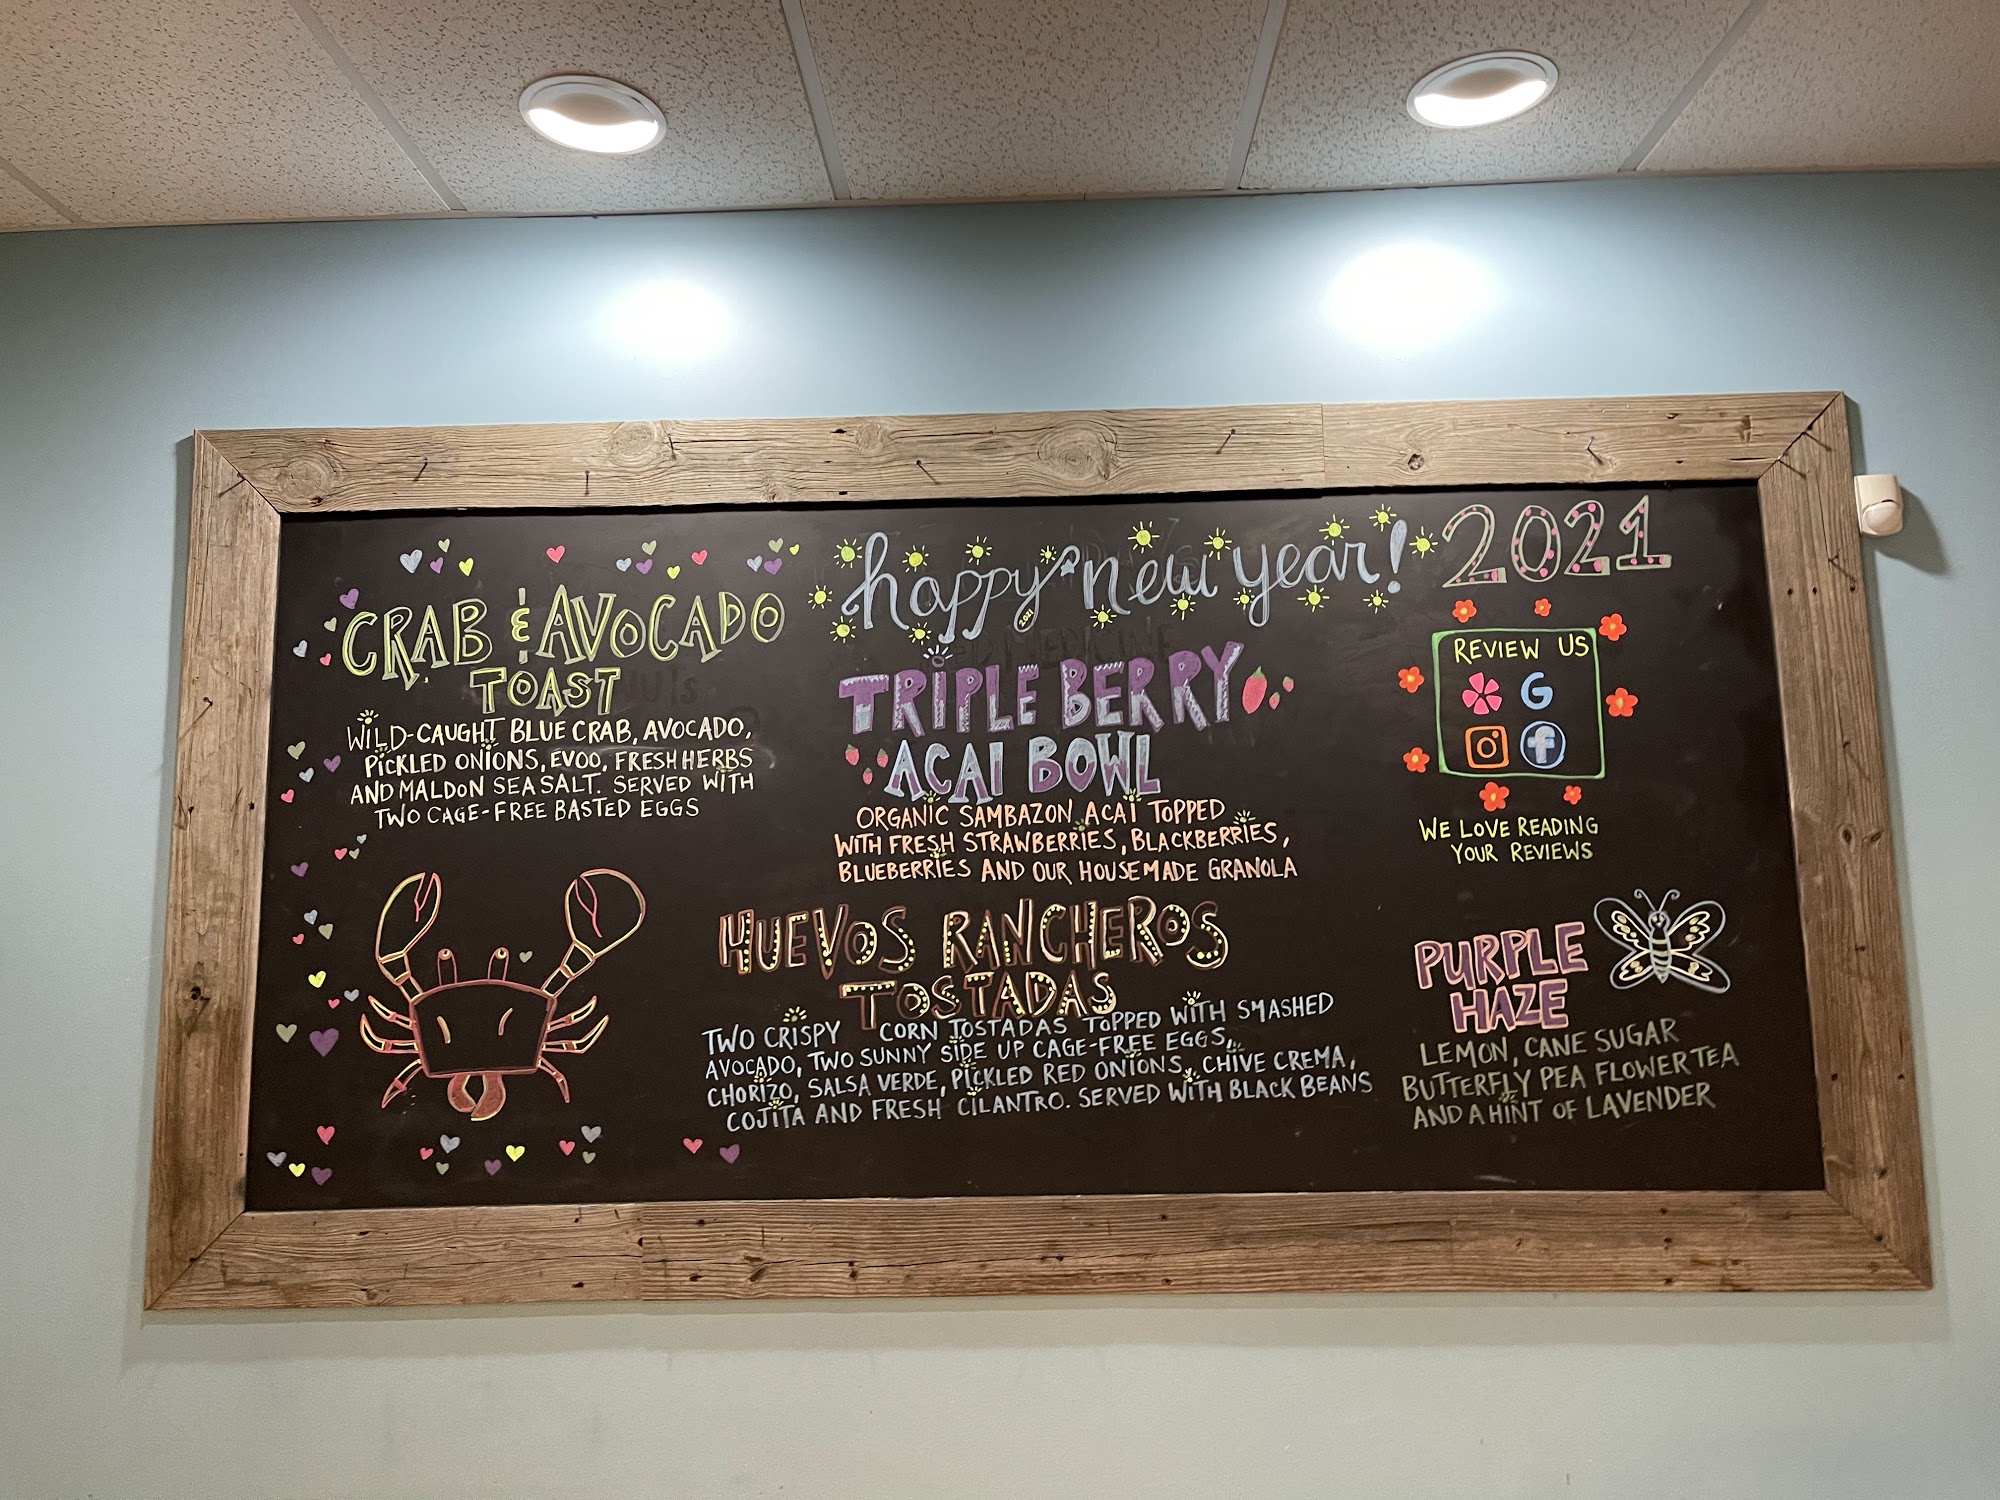 happy new year! 2021
2021
CRAB & AVOCADO
TOAST
WILD-CAUGHT BLUE CRAB, AVOCADO,
PICKLED ONIONS, EVOO, FRESH HERBS
AND MALDON SEA SALT. SERVED WITH
TWO CAGE-FREE BASTED EGGS
TRIPLE BERRY
ACAI BOWL
ORGANIC SAMBAZON ACAI TOPPED
WITH FRESH STRAWBERRIES, BLACKBERRIES,
BLUEBERRIES AND OUR HOUSEMADE GRANOLA
HUEVOS RANCHEROS
TOSTADAS
TWO CRISPY CORN TOSTADAS TOPPED WITH SMASHED
AVOCADO, TWO SUNNY SIDE UP CAGE-FREE EGGS,
CHORIZO, SALSA VERDE, PICKLED RED ONIONS, CHIVE CREMA,
COJITA AND FRESH CILANTRO. SERVED WITH BLACK BEANS
REVIEW US
G
f
WE LOVE READING
YOUR REVIEWS
PURPLE
HAZE
LEMON, CANE SUGAR
BUTTERFLY PEA FLOWER TEA
AND A HINT OF LAVENDER